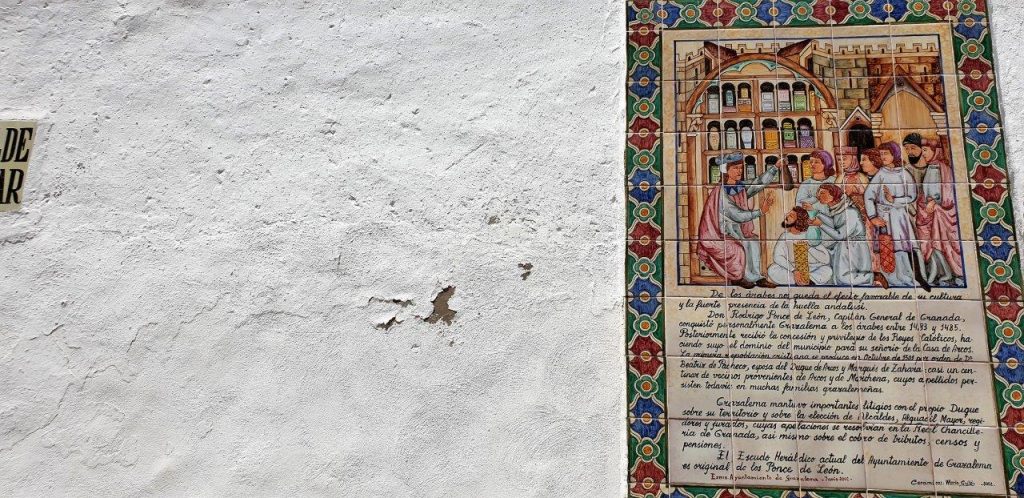 DE
AR
De los árabes nos queda el efecto favorable de su cultura
y la fuerte presencia de la huella andalusí.
Don Rodrigo Ponce de León, Capitán General de Granada,
conquistó personalmente Grazalema a los árabes entre 1483 y 1485.
Posteriormente recibió la concesión y privilegio de los Reyes Católicos, ha
ciendo suyo el dominio del municipio para su señorío de la Casa de Arcos.
La primera repoblación cristiana se produce en Octubre de 1501 por orden de Dª
Beatriz de Pacheco, esposa del Duque de Arcos y Marqués de Zahara: casi un cen
tenar de vecinos provenientes de Arcos y de Marchena, cuyos apellidos per
sisten todavía en muchas familias grazalemeñas.
Grazalema mantuvo importantes litigios con el propio Duque
sobre su territorio y sobre la elección de Alcaldes, Alguacil Mayor, regi
dores y jurados, cuyas apelaciones se resolvían en la Real Chancille
ría de Granada, así mismo sobre el cobro de tributos, censos y
pensiones.
El Escudo Heráldico actual del Ayuntamiento de Grazalema
es original de los Ponce de León.
Excmo. Ayuntamiento de Grazalema. Junio 2002.